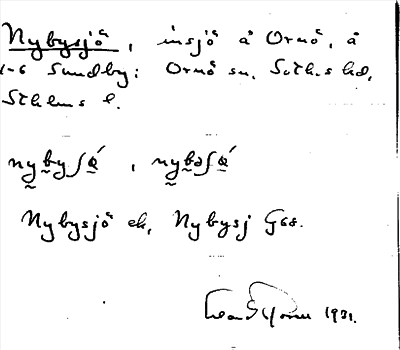 Nybysjö, insjö å Ornö, å
1-6 Sundby: Ornö sn, Soth.s hd,
Sthlms l.
nybyʃö́, nybəʃö́
Nybysjö ek, Nybysj Gss.
1931.